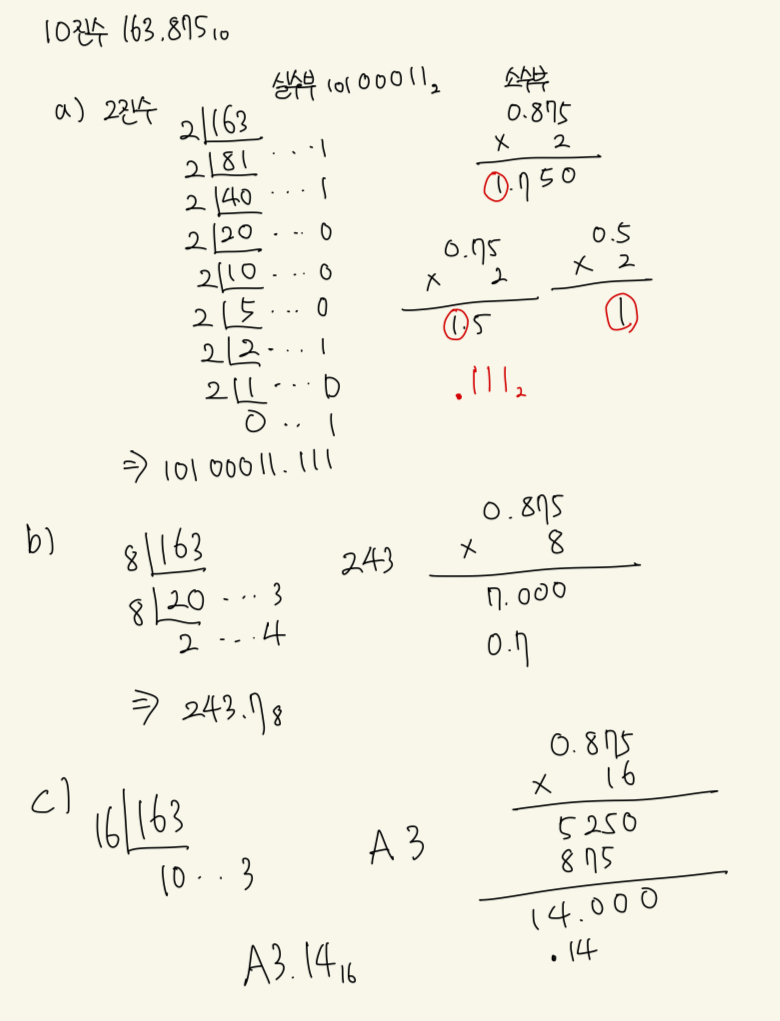 10진수 163.875₁₀
실수부 10100011₂
소수부
a) 2진수
2 163
2 81 ... 1
2 40 ... 1
2 20 ... 0
2 10 ... 0
2 5 ... 0
2 2 ... 1
2 1 ... 0
0 .. 1
0.875
× 2
1.750
0.75
× 2
1.5
0.5
× 2
1
.111₂
⇒ 10100011.111
b)
8 163
8 20 ... 3
2 ... 4
243
0.875
× 8
7.000
0.7
⇒ 243.7₈
c)
16 163
10 .. 3
A3
0.875
× 16
5250
875
14.000
.14
A3.14₁₆